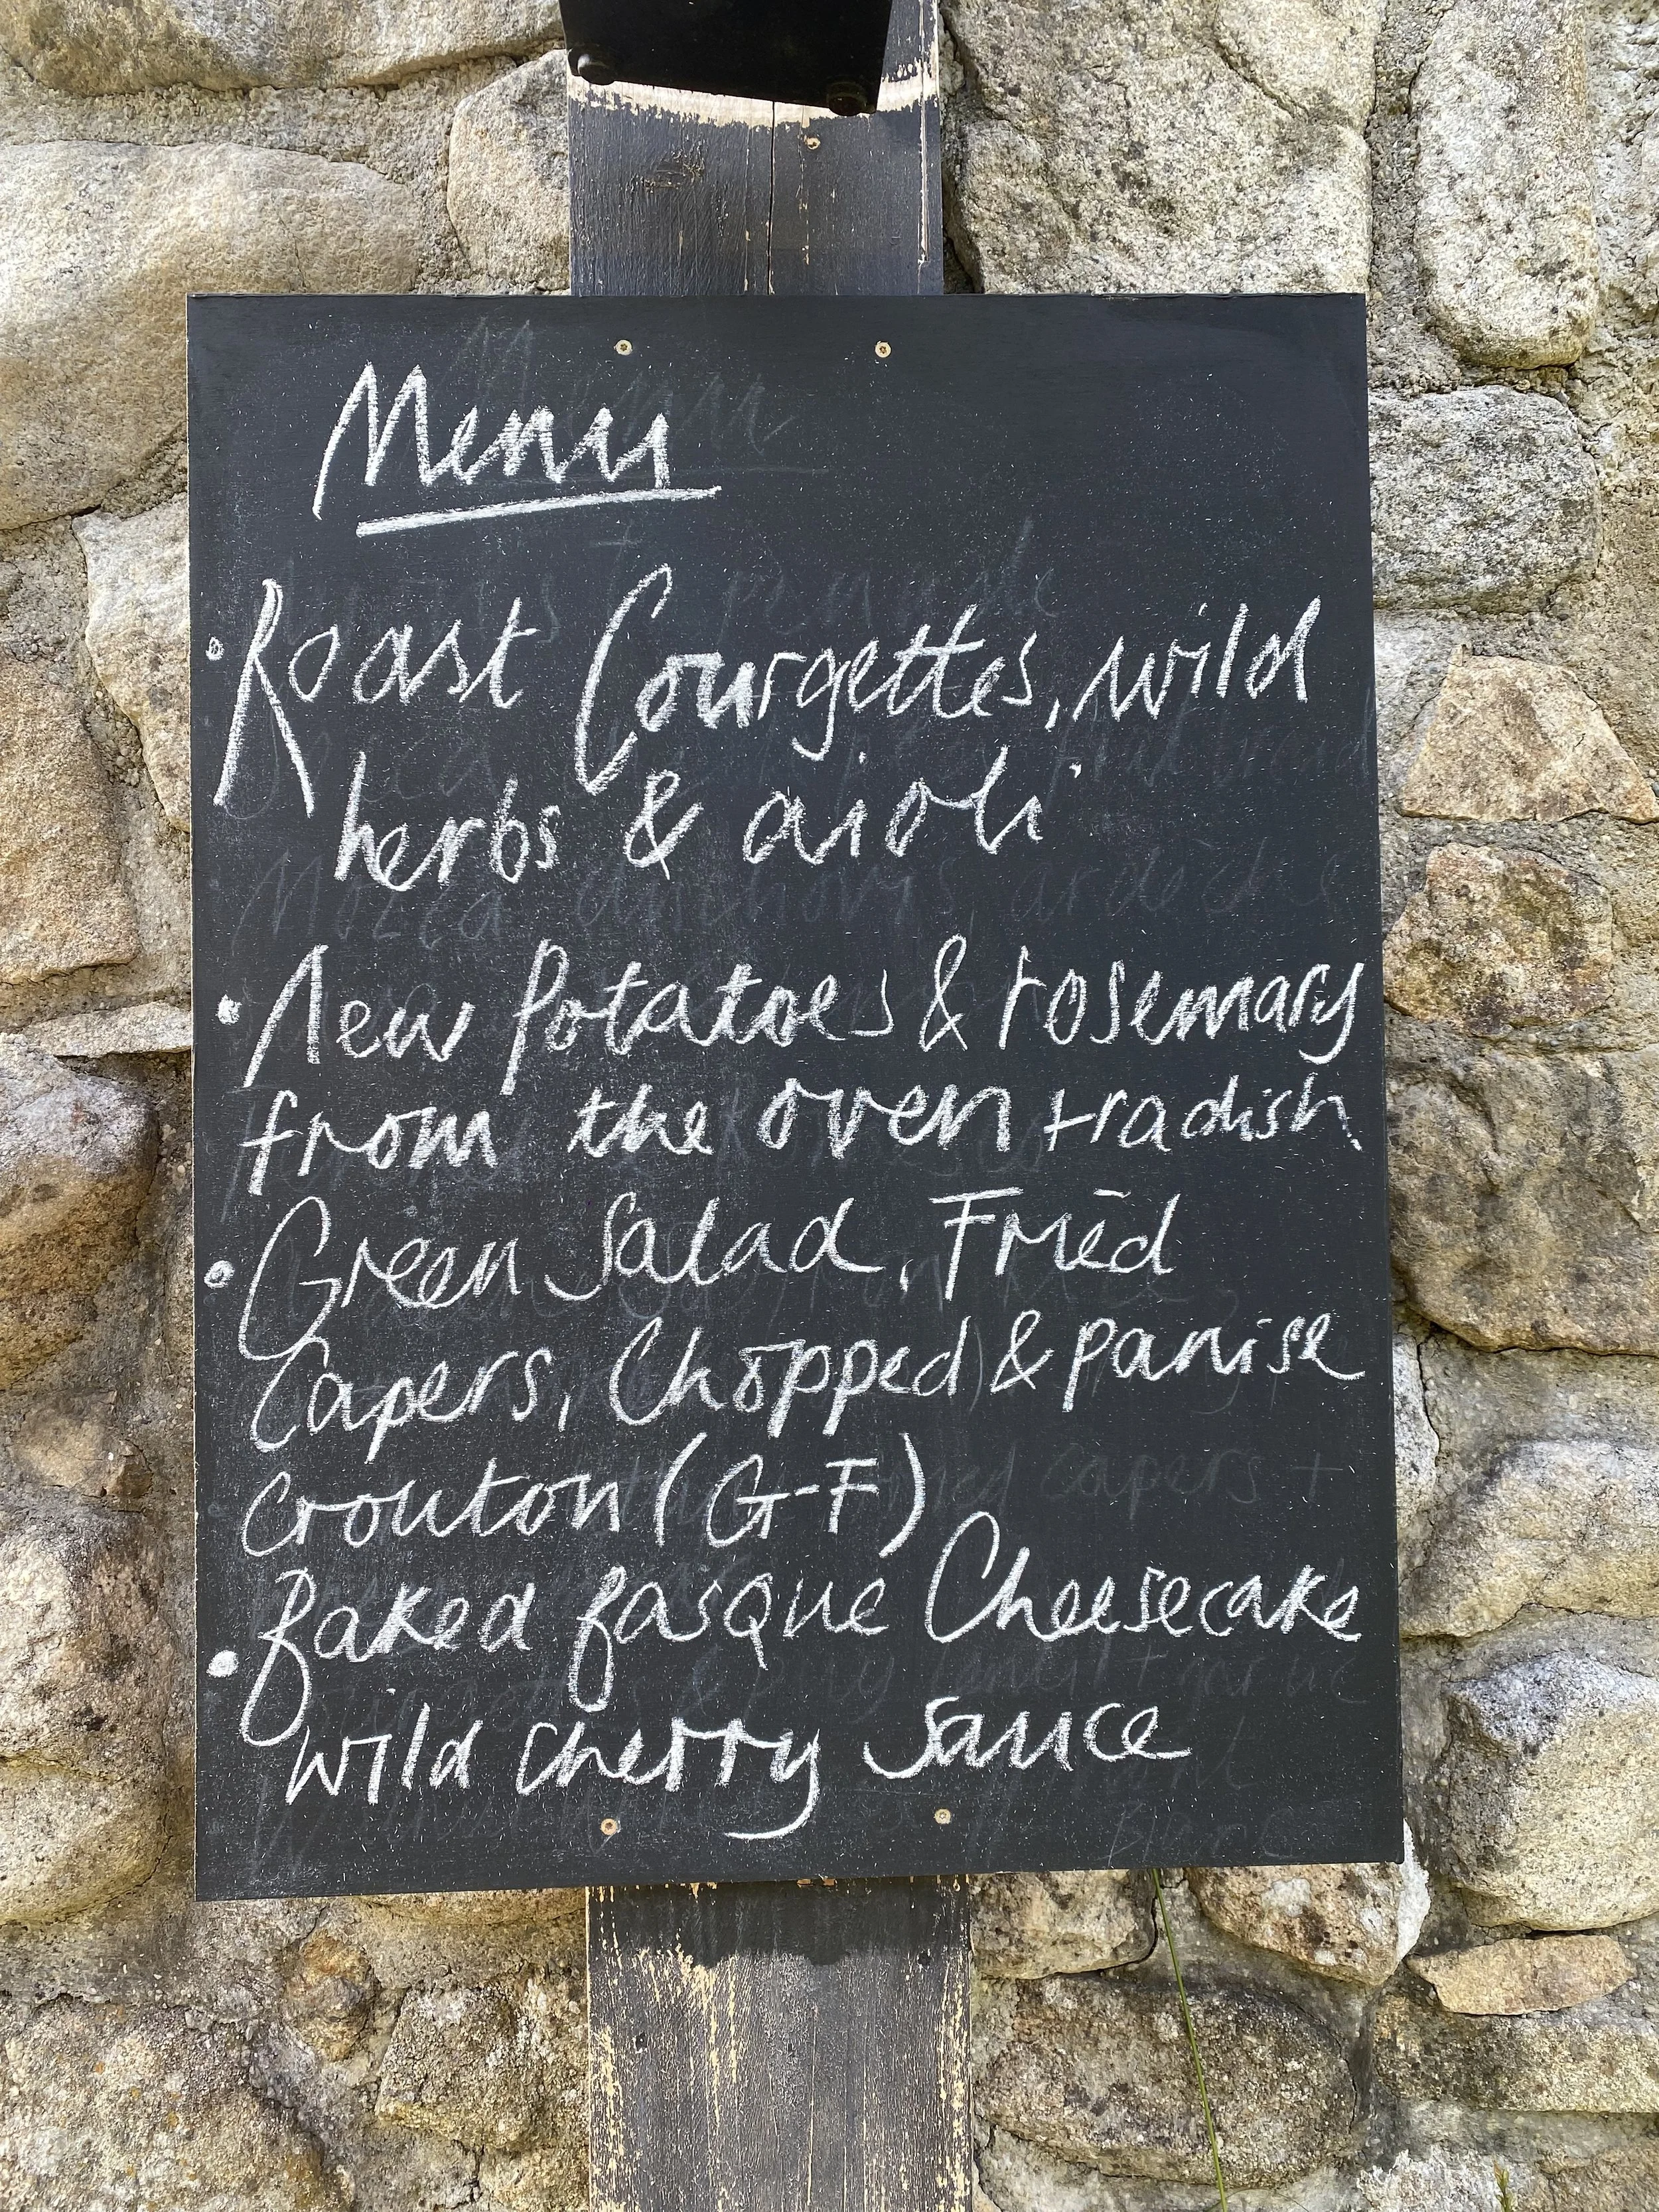 Menu
• Roast Courgettes, wild
herbs & aioli
• New Potatoes & rosemary
from the oven + radish
• Green Salad, Fried
Capers, Chopped & panise
Crouton (G-F)
• Baked Basque Cheesecake
wild cherry Sauce